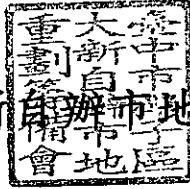 臺中市區
大新自辦市地
重劃籌備會
新自辦市地